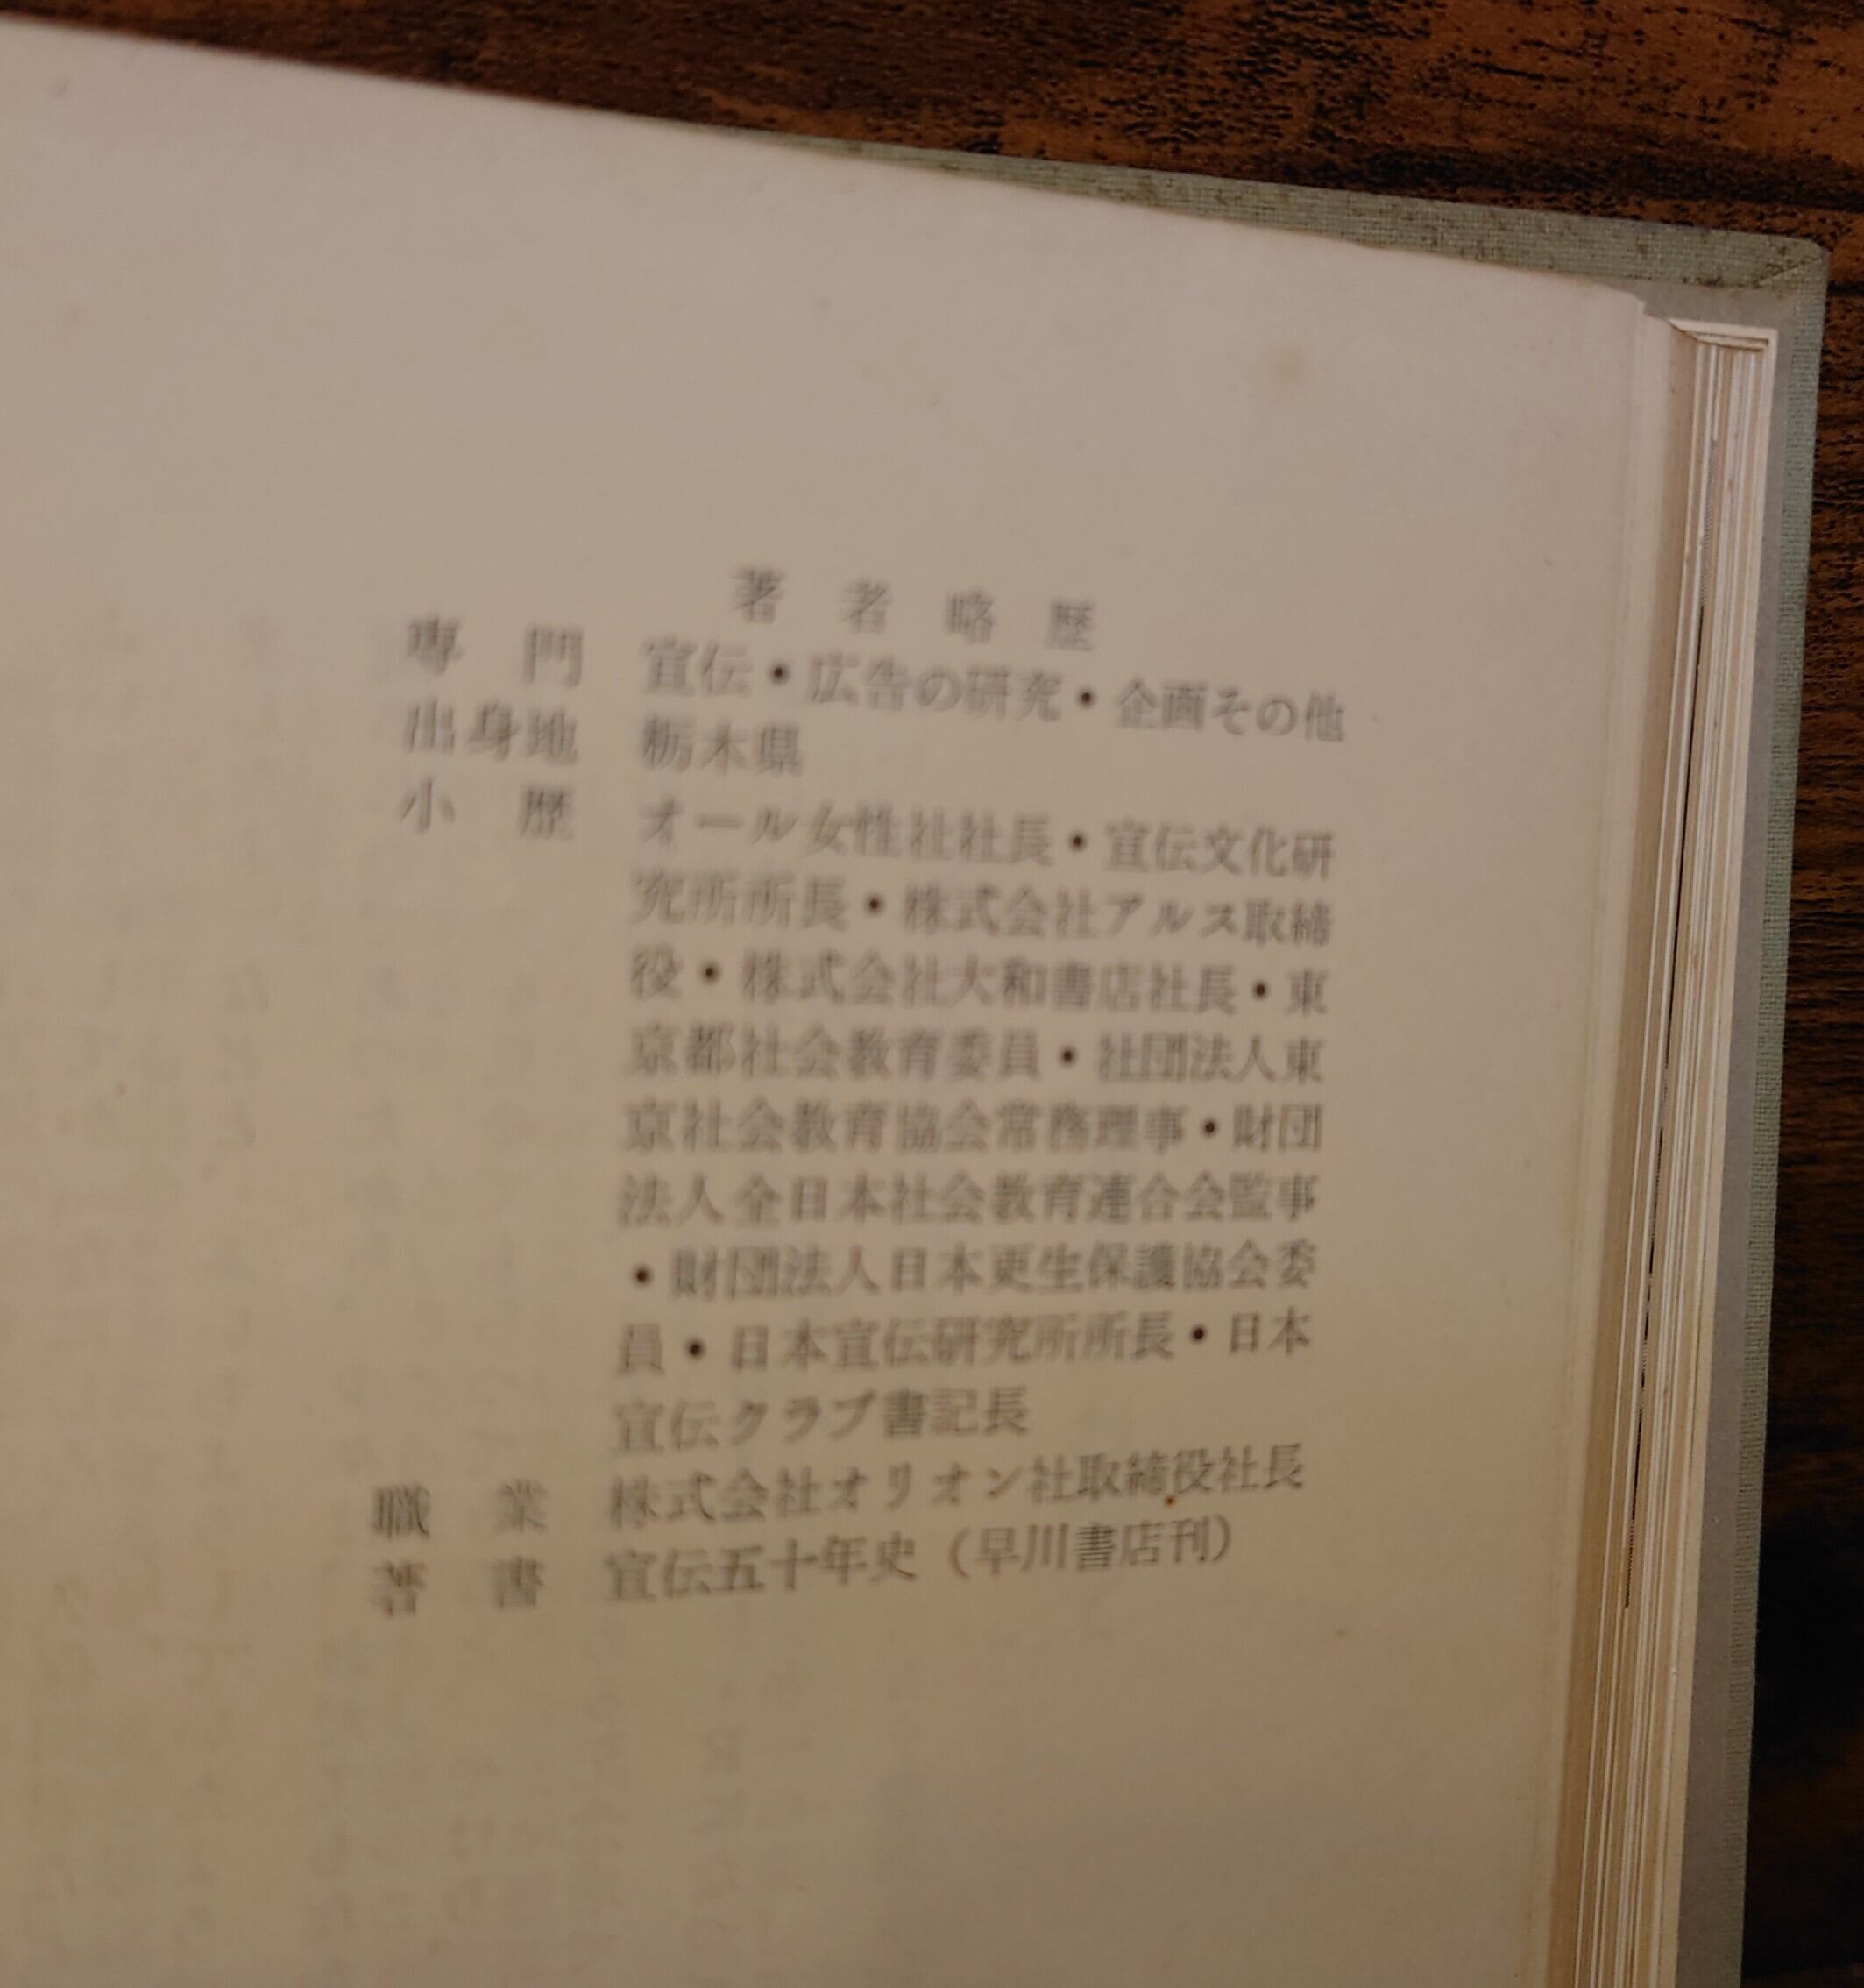 著者略歴
専門 宣伝・広告の研究・企画その他
出身地 栃木県
小歴 オール女性社社長・宣伝文化研
究所所長・株式会社アルス取締
役・株式会社大和書店社長・東
京都社会教育委員・社団法人東
京社会教育協会常務理事・財団
法人全日本社会教育連合会監事
・財団法人日本更生保護協会委
員・日本宣伝研究所所長・日本
宣伝クラブ書記長
職業 株式会社オリオン社取締役社長
著書 宣伝五十年史(早川書店刊)